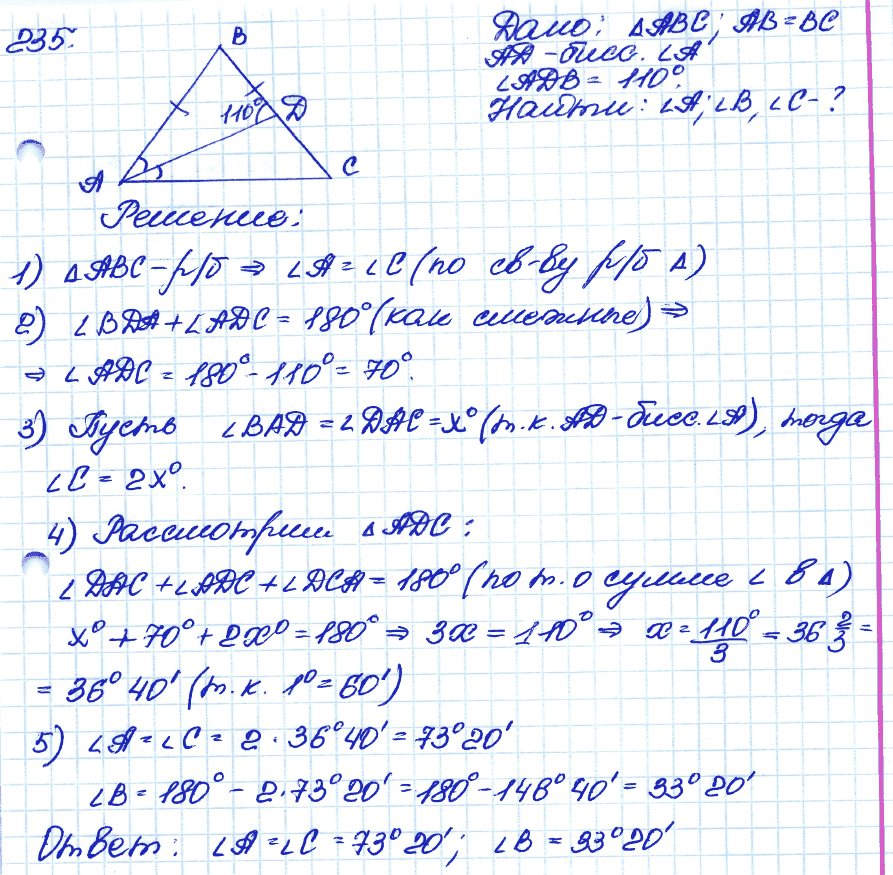 235.
B
110°
D
A
C
Дано: ΔABC; AB=BC
AD - бисс. ∠A
∠ADB = 110°.
Найти: ∠A; ∠B, ∠C - ?
Решение:
1) ΔABC - р/б ⇒ ∠A = ∠C (по св-ву р/б Δ)
2) ∠BDA + ∠ADC = 180° (как смежные) ⇒
⇒ ∠ADC = 180° - 110° = 70°.
3) Пусть ∠BAD = ∠DAC = x° (т.к. AD - бисс. ∠A), тогда
∠C = 2x°.
4) Рассмотрим ΔADC:
∠DAC + ∠ADC + ∠DCA = 180° (по т. о сумме ∠ в Δ)
x° + 70° + 2x° = 180° ⇒ 3x = 110° ⇒ x = 110°/3 = 36 2/3 =
= 36° 40' (т.к. 1° = 60')
5) ∠A = ∠C = 2 · 36° 40' = 73° 20'
∠B = 180° - 2 · 73° 20' = 180° - 146° 40' = 33° 20'
Ответ: ∠A = ∠C = 73° 20'; ∠B = 33° 20'